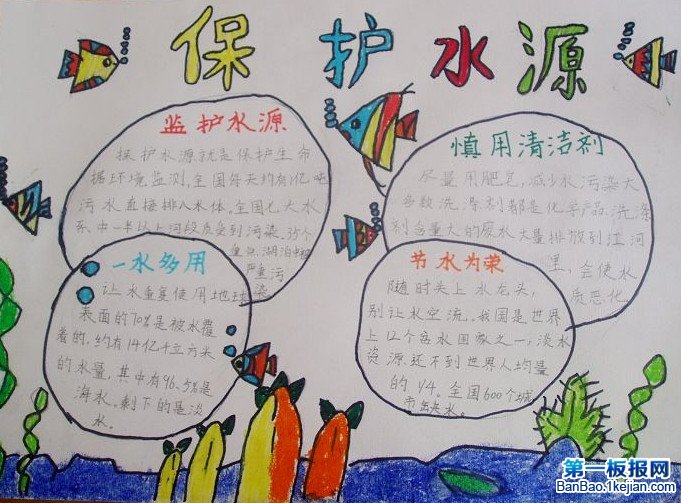 保护水源
监护水源
保护水源就是保护生命
据环境监测,全国每天约有1亿吨
污水直接排入水体。全国七大水
系中一半以上河段受到污染。35个
重点湖泊中
严重污
染
慎用清洁剂
尽量用肥皂,减少水污染大
多数洗涤剂都是化学产品,洗涤
剂含量大的废水大量排放到江河
里,会使水
质恶化
一水多用
让水重复使用地球
表面的70%是被水覆
盖的,约有14亿4立方米
的水量,其中有96.5%是
海水。剩下的是淡
水。
节水为荣
随时关上水龙头,
别让水空流。我国是世界
上12个贫水国家之一,淡水
资源还不到世界人均量
的1/4。全国600个城
市缺水。
第一板报网
BanBao.1kejian.com